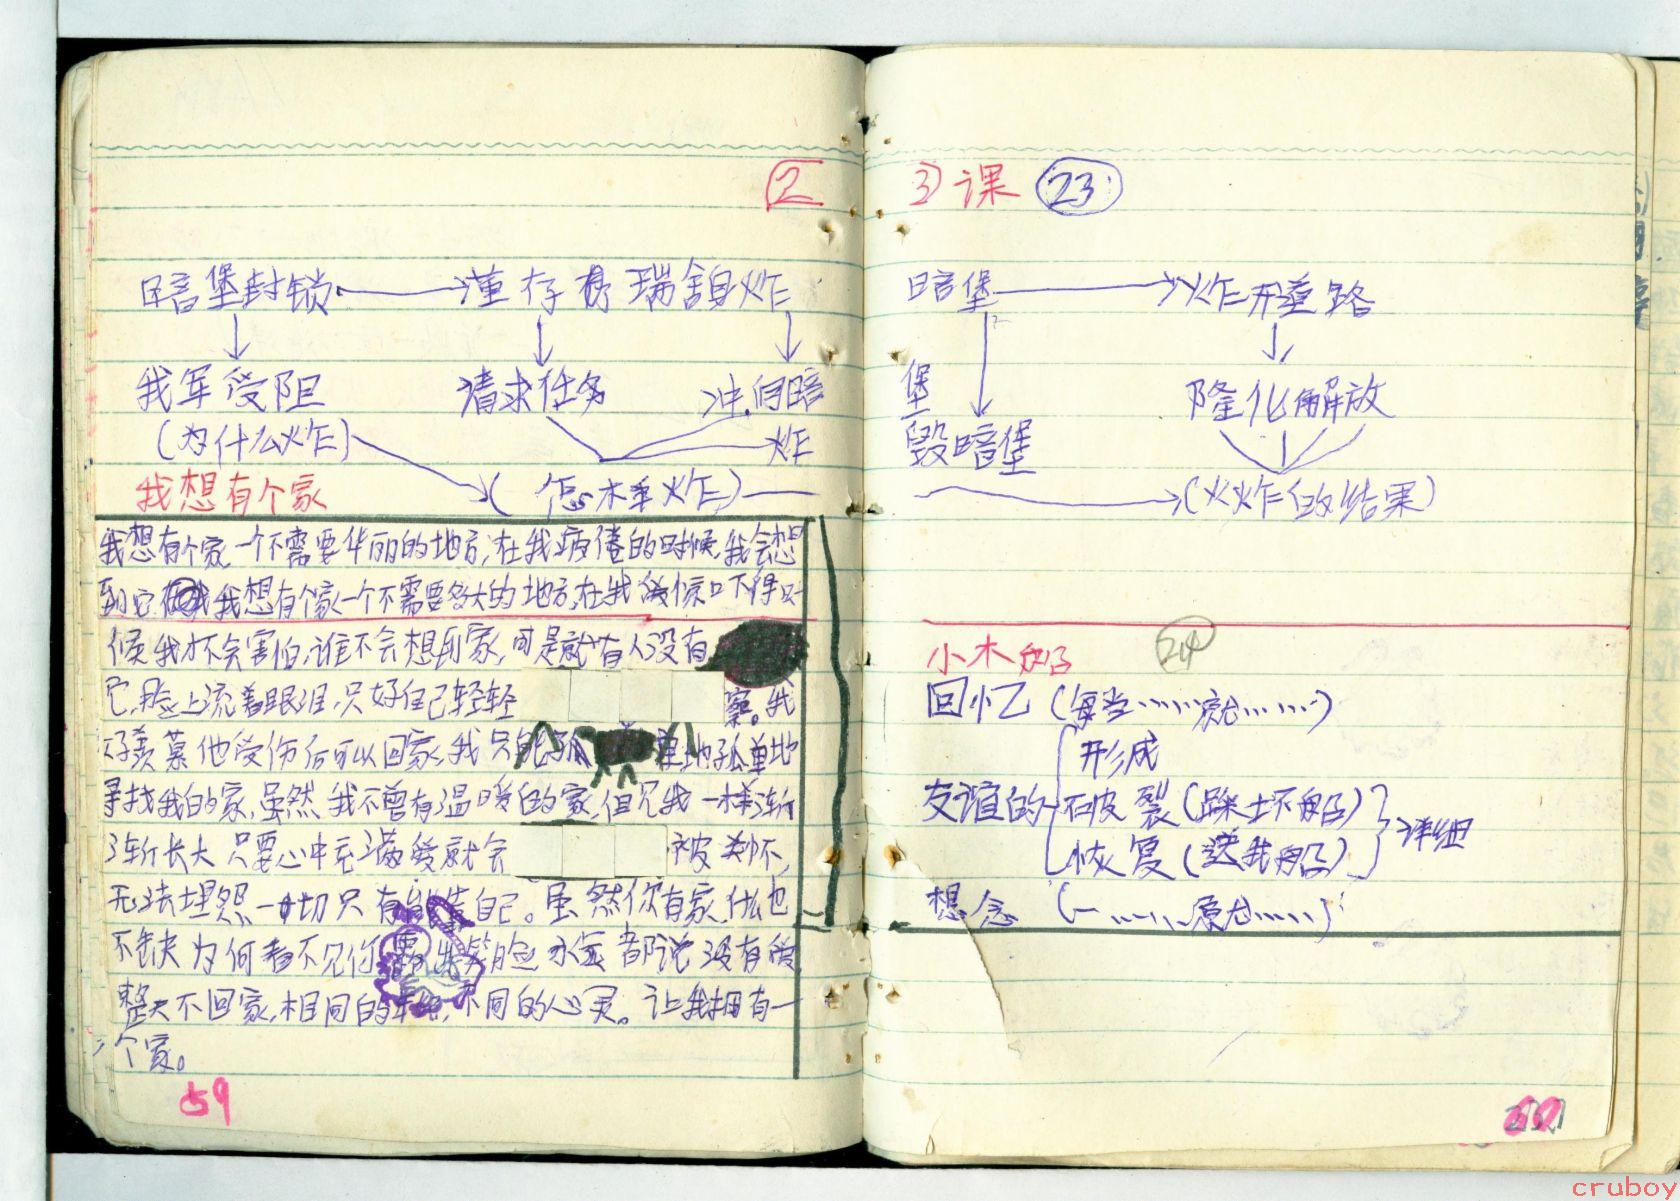 2
暗堡封锁 董存瑞舍身炸
我军受阻 请求任务 冲向暗
(为什么炸) 炸
我想有个家 (怎样炸)
我想有个家,一个不需要华丽的地方,在我疲倦的时候,我会想
到它 我想有个家,一个不需要多大的地方,在我惊吓得时
候我才不会害怕,谁不会想到家,可是就有人没有
它,脸上流着眼泪,只好自己轻轻 察。我
好羡慕他受伤后可以回家,我只能孤 单地孤单地
寻找我的家,虽然我不曾有温暖的家,但 我一样渐
渐长大 只要心中充满爱就会 被 怀,
无法埋怨一切只有 自己。虽然你有家什么也
不缺为何看不见你露出笑脸 永远都说没有爱
整天不回家,相同的年 ,不同的心灵。让我拥有一
个家。
59
3课 23
暗堡 炸开道路
堡 隆化解放
毁暗堡
(火炸的结果)
小木船 24
回忆 (每当……就……)
形成
友谊的 破裂(踩坏船) 详细
恢复(送我船)
想念 (一……原……)
cruboy